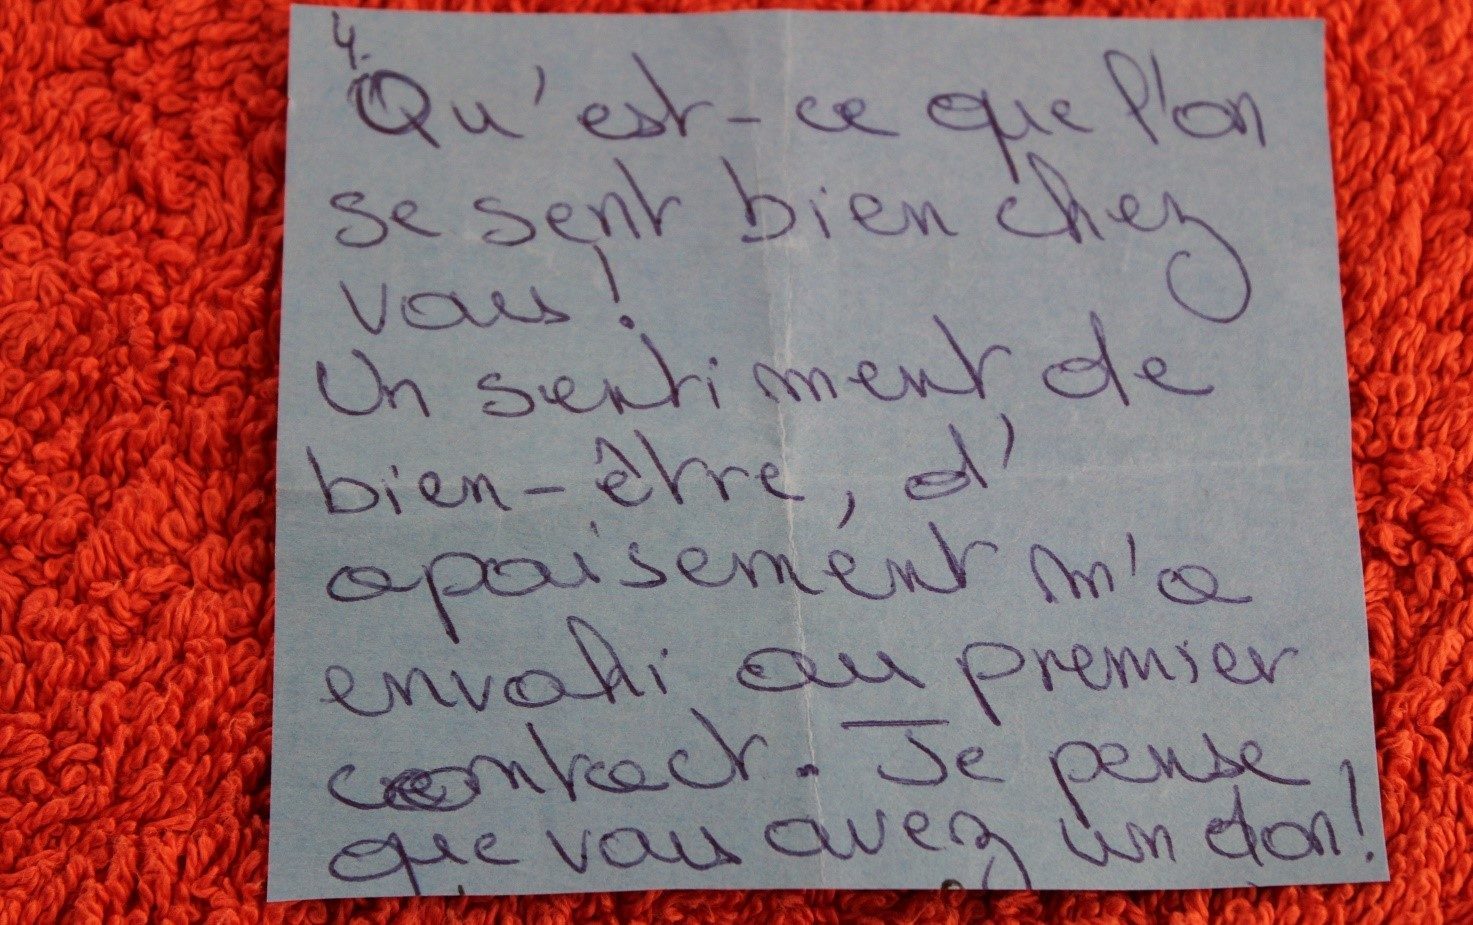 4.
Qu'est-ce que l'on
se sent bien chez
vous!
Un sentiment de
bien-être, d'
apaisement m'a
envahi au premier
contact. Je pense
que vous avez un don!